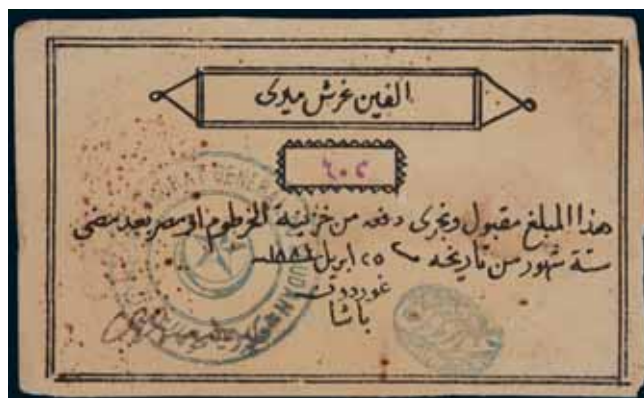 الفين غرش ميري
٦٠٢
هذا المبلغ مقبول ونجرى دفعه من خزينة الخرطوم او مصر بعد مضى
ستة شهور من تاريخه ٢٥ ابريل ١٨٨٤
غوردون
باشا